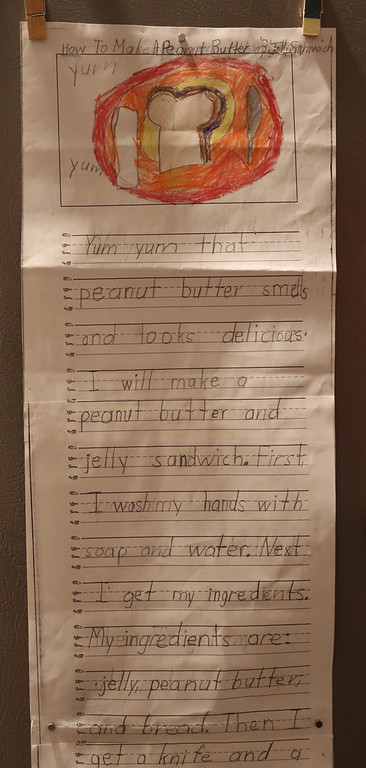 How To Make A Peanut Butter and Jelly Sandwich
yum
yum
Yum yum that
peanut butter smells
and looks delicious.
I will make a
peanut butter and
jelly sandwich. First,
I wash my hands with
soap and water. Next
I get my ingredients.
My ingredients are:
jelly, peanut butter,
and bread. Then I
get a knife and a